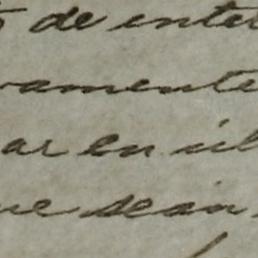 de inter
amente
ar en úl
ue sean